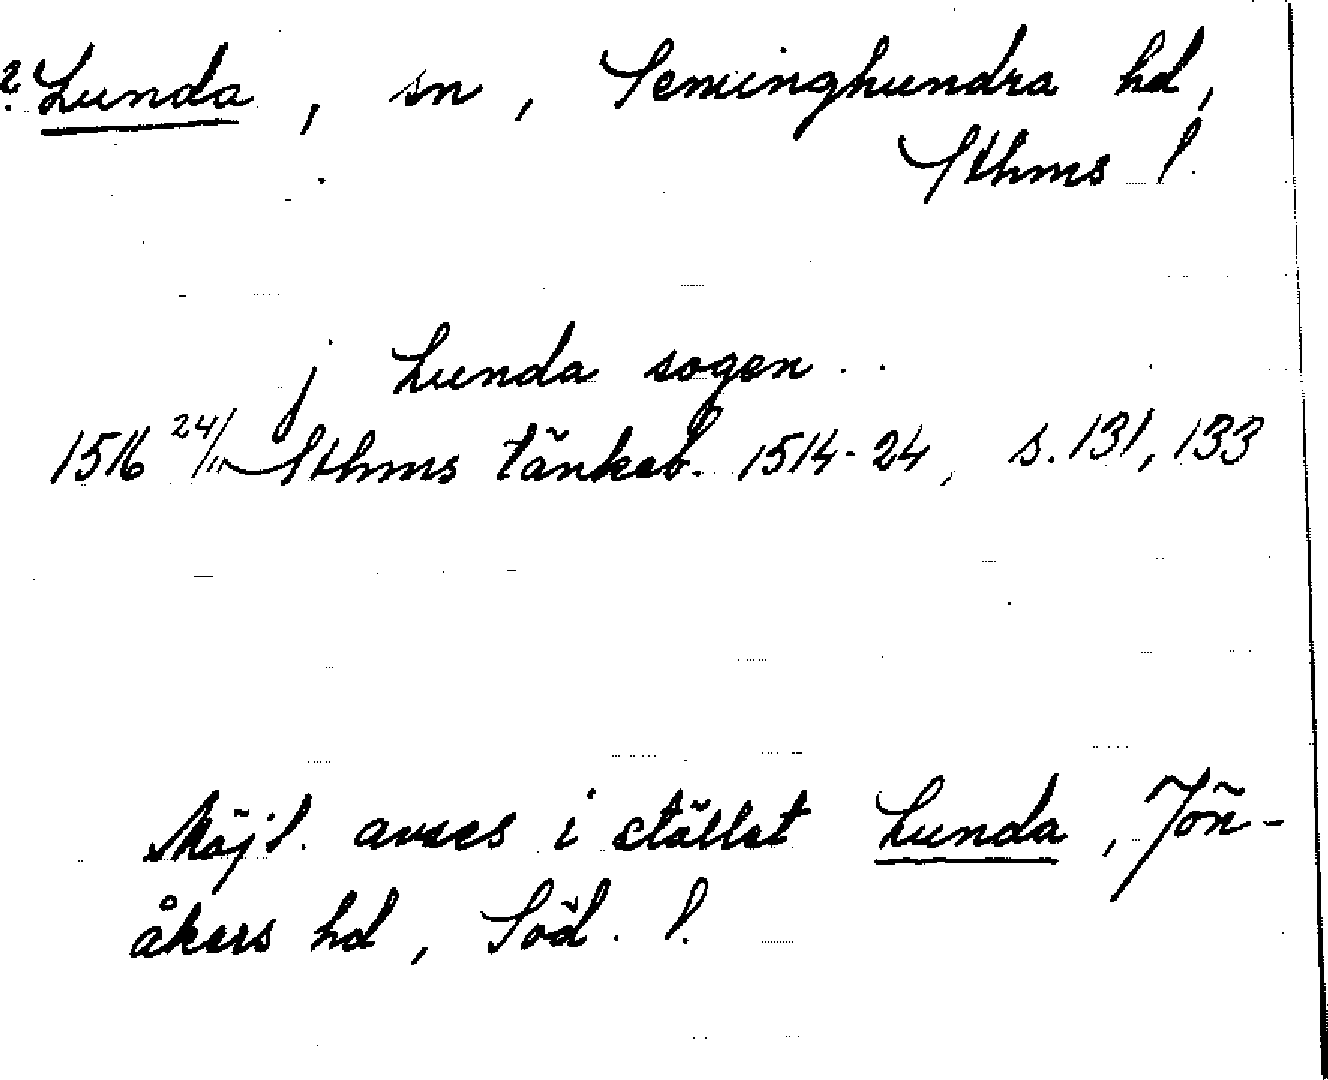 ? Lunda, sn, Seminghundra hd,
Sthms l.
j Lunda sogen
1516 24/11 Sthms tänkeb. 1514-24, s. 131, 133
Möjl. avses i stället Lunda, Jön-
åkers hd, Söd. l.